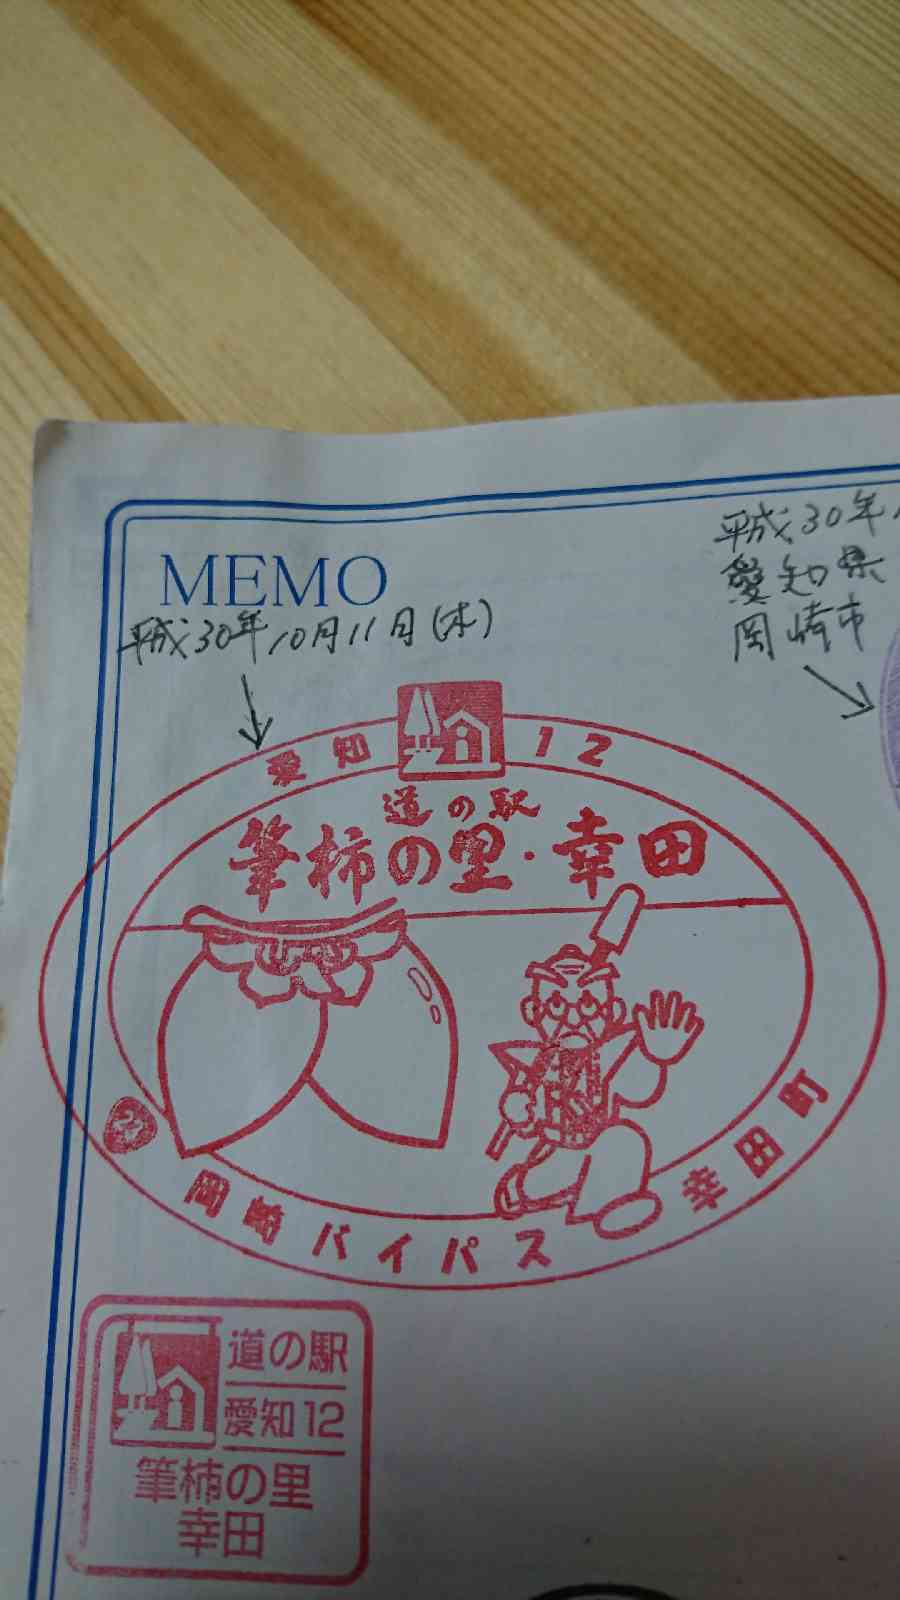 MEMO
平成30年10月11日(木)
平成30年
愛知県
岡崎市
愛知 12
道の駅
筆柿の里・幸田
23 岡崎バイパス 幸田町
道の駅
愛知12
筆柿の里
幸田